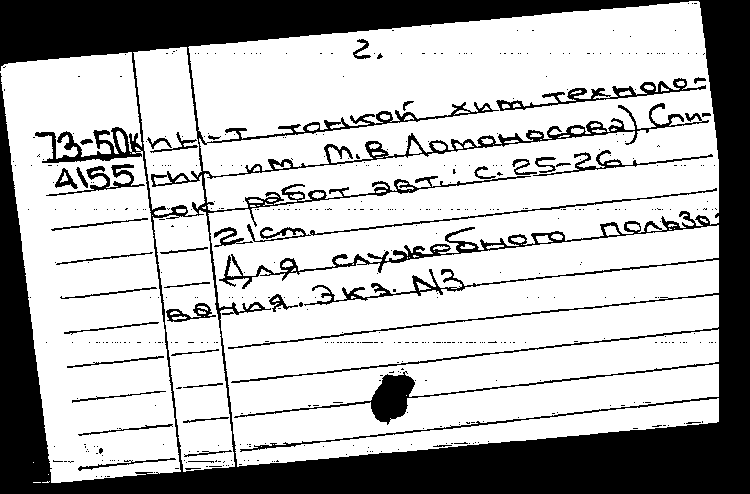 2.
73-50к ин-т тонкой хим. техноло-
4155 гии им. М.В. Ломоносова). Спи-
сок работ авт.: с. 25-26.
21 см.
Для служебного пользо-
вания. Экз. N3.